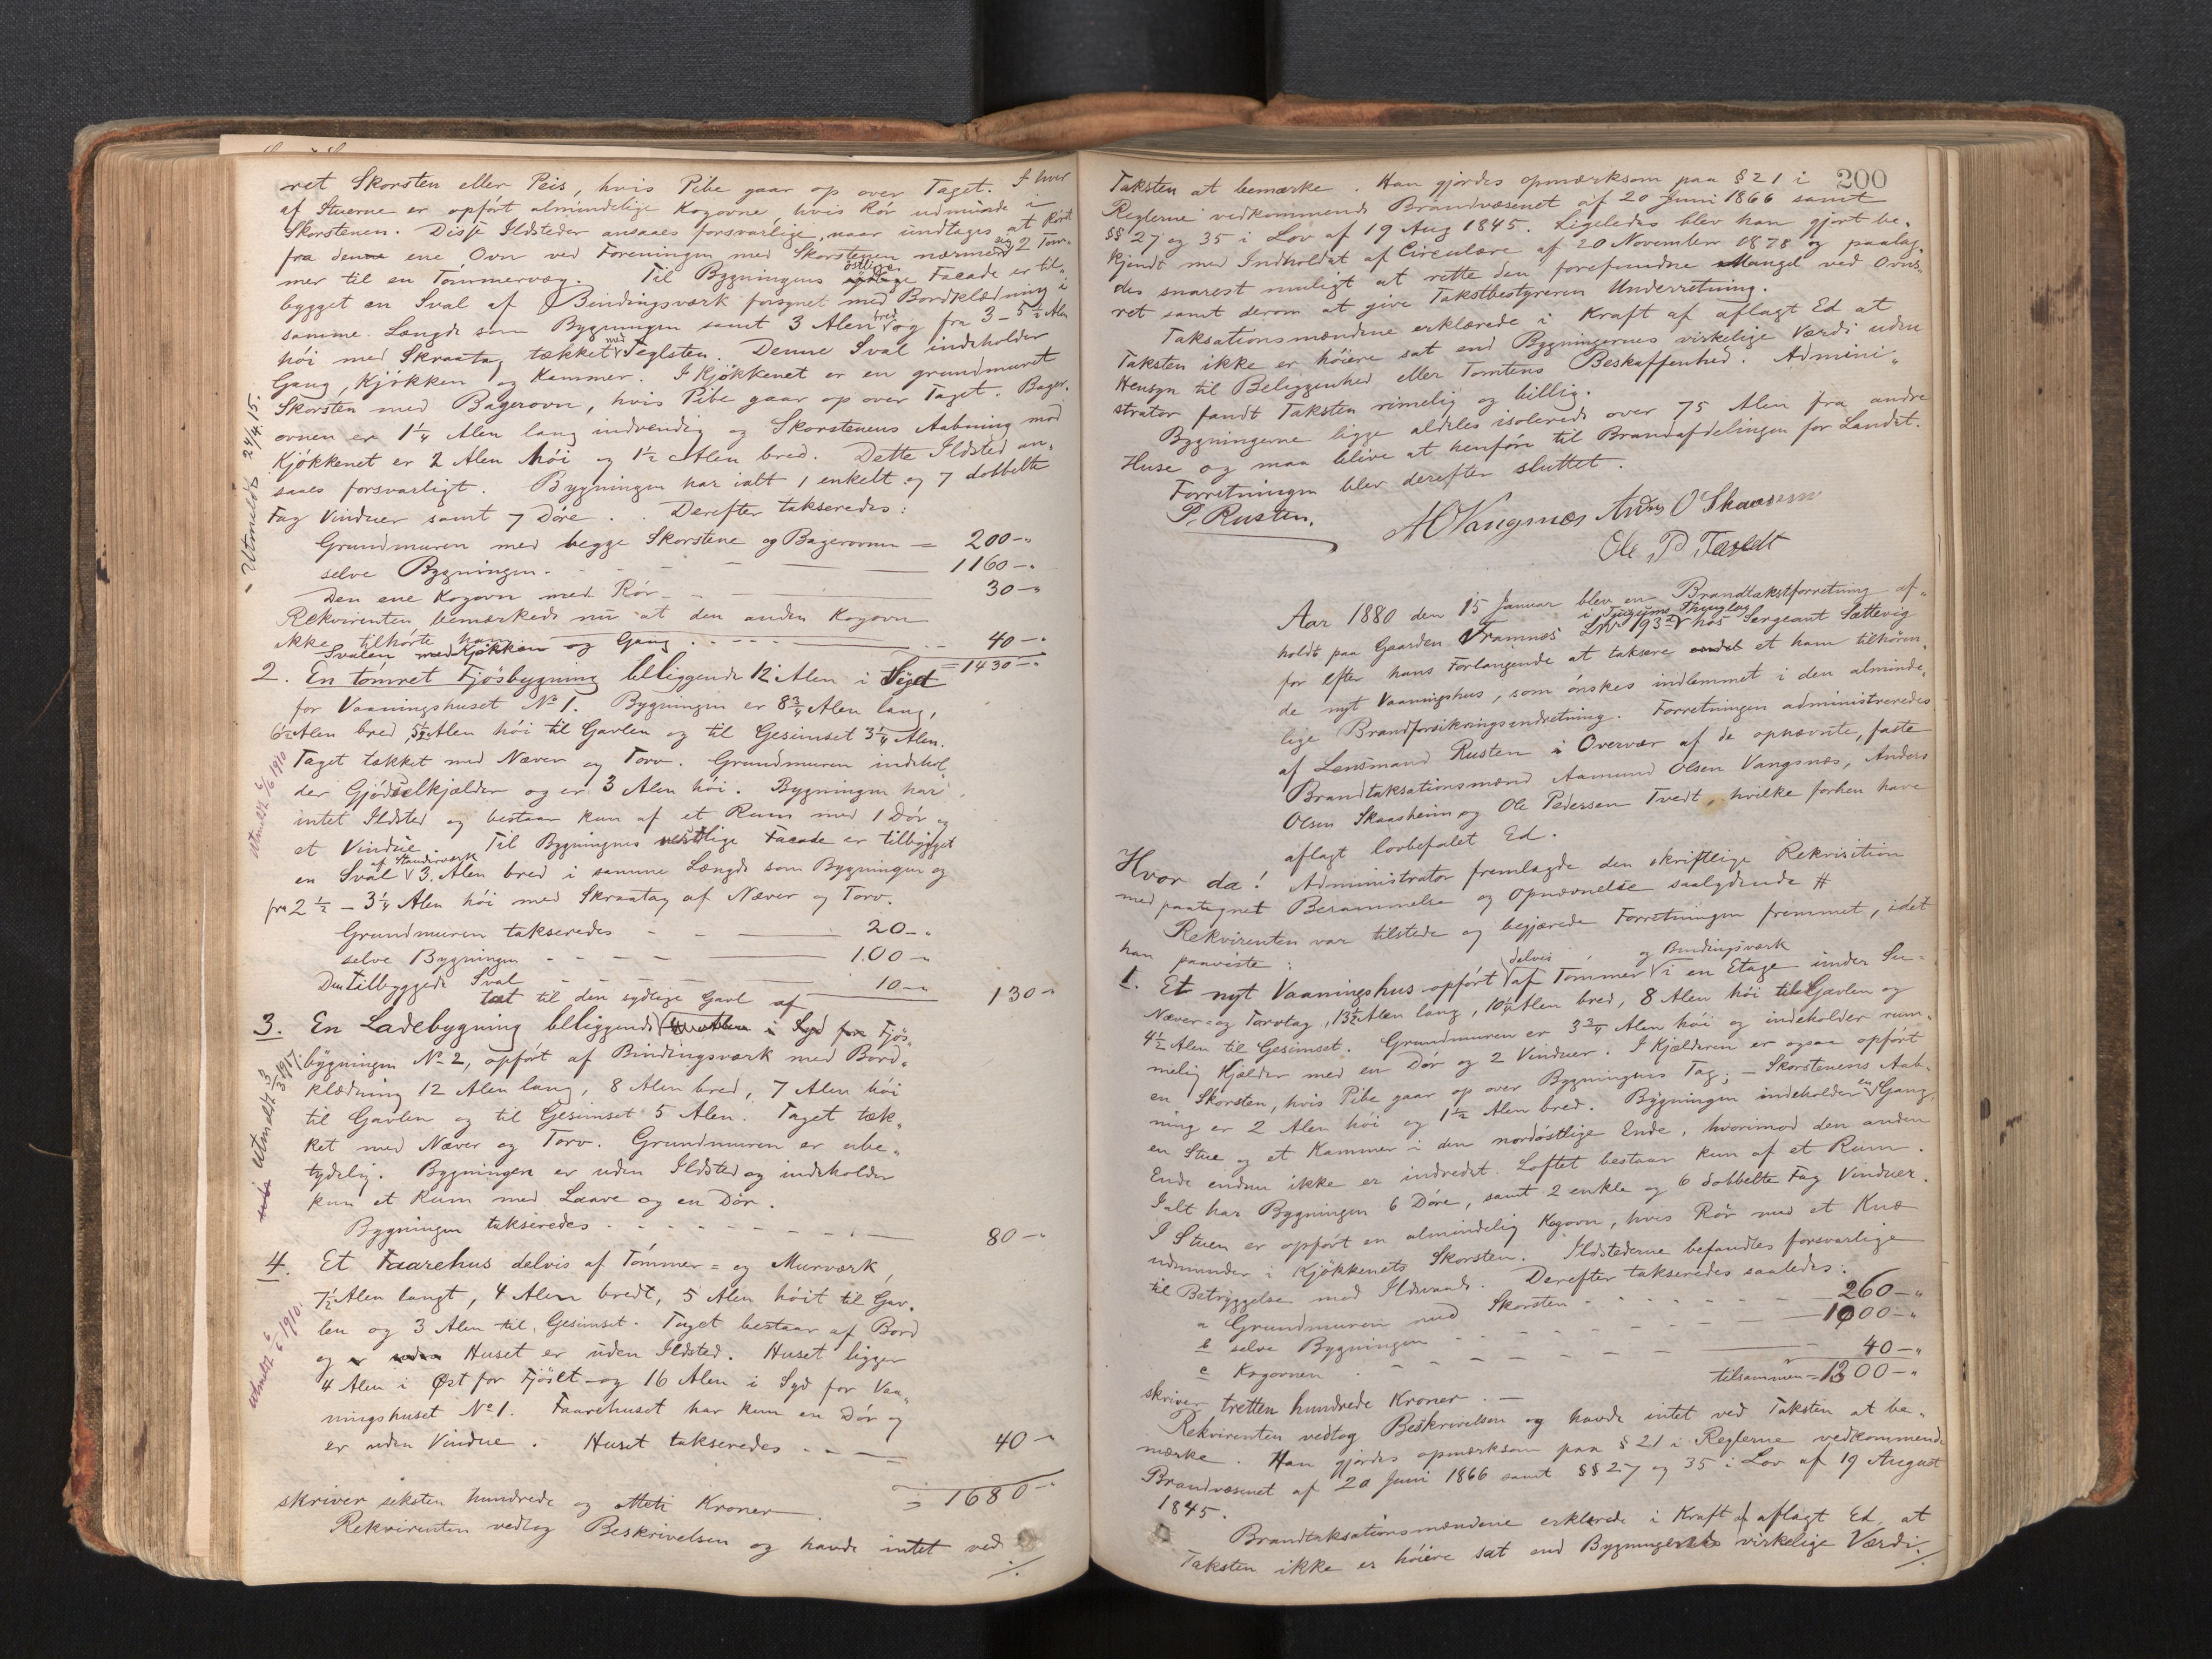 ret Skorsten eller Peis, hvis Pibe gaar op over Taget. I hver
af Stuerne er opført almindelige Kogovne, hvis Rör udmunde i
Skorstenen. Disse Ildsteder ansaaes forsvarlige, naar undtages at Röret
fra denne ene Ovn ved Foreningen med Skorstenen nærmer sig 2 Tom-
mer til en Tömmervæg. Til Bygningens östlige Facade er til-
bygget en Sval af Bindingsværk forsynet med Bordklædning i
samme Længde som Bygningen samt 3 Alen bred og fra 3 - 5½ Alen
höi med Skraatag tækket med Teglsten. Denne Sval indeholder
Gang, Kjökken og Kammer. I Kjökkenet er en grundmuret
Skorsten med Bagerovn, hvis Pibe gaar op over Taget. Bager-
ovnen er 1¼ Alen lang indvendig og Skorstenens Aabning mod
Kjökkenet er 2 Alen höi og 1½ Alen bred. Dette Ildsted an-
saaes forsvarligt. Bygningen har ialt 1 enkelt og 7 dobbelte
Fag Vinduer samt 7 Döre. Derefter takseredes:
Grundmuren med begge Skorstene og Bagerovnen = 200 - "
selve Bygningen - 1160 - "
Den ene Kogovn med Rör - 30 - "
Rekvirenten bemærkede nu at den anden Kogovn
ikke tilhörte ham.
Svalen med Kjökken og Gang - 40 - "
= 1430 - "
2. En tömret Fjösbygning beliggende 12 Alen i Syd
for Vaaningshuset No 1. Bygningen er 8¾ Alen lang,
6½ Alen bred, 5½ Alen höi til Gavlen og til Gesimset 3¼ Alen.
Taget tækket med Næver og Torv. Grundmuren indehol-
der Gjödselkjælder og er 3 Alen höi. Bygningen har
intet Ildsted og bestaar kun af et Rum med 1 Dör og
et Vindue. Til Bygningens vestlige Facade er tilbygget
en Sval af Standerværk 3 Alen bred i samme Længde som Bygningen og
fra 2½ - 3¼ Alen höi med Skraatag af Næver og Torv.
Grundmuren takseredes - 20 - "
selve Bygningen - 100 - "
Den tilbyggede Sval - 10 - "
130 - "
tæt til den sydlige Gavl af
3. En Ladebygning beliggende 4 Alen i Syd for Fjös-
bygningen No 2, opfört af Bindingsværk med Bord-
klædning 12 Alen lang, 8 Alen bred, 7 Alen höi
til Gavlen og til Gesimset 5 Alen. Taget tæk-
ket med Næver og Torv. Grundmuren er ube-
tydelig. Bygningen er uden Ildsted og indeholder
kun et Rum med Laave og en Dör.
Bygningen takseredes - 80 - "
4. Et Faarehus delvis af Tömmer = og Murværk,
7½ Alen langt, 4 Alen bredt, 5 Alen höit til Gav-
len og 3 Alen til Gesimset. Taget bestaar af Bord
og er uden Huset er uden Ildsted. Huset ligger
4 Alen i Øst for Fjöset og 16 Alen i Syd for Vaa-
ningshuset No 1. Faarehuset har kun en Dör og
er uden Vindue. Huset takseredes - 40 - "
= 1680 - "
skriver seksten hundrede og otteti Kroner.
Rekvirenten vedtog Beskrivelsen og havde intet ved
./.
Utmeldt 24/4.15.
utmeldt 6/6 1910
utmeldt 3/3 1917.
utmeldt 6/6 1910.
200
Taksten at bemærke. Han gjordes opmærksom paa § 21 i
Reglerne vedkommende Brandvæsenet af 20 Juni 1866 samt
§§ 27 og 35 i Lov af 19 Aug 1845. Ligeledes blev han gjort be-
kjendt med Indholdet af Circulære af 20 November 1878 og paalag-
des snarest muligt at rette den forefundne Mangel ved Ovns-
ret samt derom at give Takstbestyreren Underretning.
Taksationsmændene erklærede i Kraft af aflagt Ed at
Taksten ikke er höiere sat end Bygningernes virkelige Værdi uden
Hensyn til Beliggenhed eller Tomtens Beskaffenhed. Admini-
strator fandt Taksten rimelig og billig.
Bygningerne ligge aldeles isolerede over 75 Alen fra andre
Huse og maa blive at henföre til Brandafdelingen for Landet.
Forretningen blev derefter sluttet.
P. Rusten. AO Vangsnæs Andrs O Skaasheim
Ole P Tvedt
Aar 1880 den 15 Januar blev en Brandtakstforretning af-
holdt paa Gaarden Framnæs LNr 193 i Tjugums Thinglag hos Sergeant Sættevig
for efter hans Forlangende at taksere et ham tilhören-
de nyt Vaaningshus, som önskes indlemmet i den alminde-
lige Brandforsikringsindretning. Forretningen administreredes
af Lensmand Rusten i Overvær af de opnævnte, faste
Brandtaksationsmænd Aamund Olsen Vangsnæs, Anders
Olsen Skaasheim og Ole Pedersen Tvedt, hvilke forhen have
aflagt lovbefalet Ed.
Hvor da! Administrator fremlagde den skriftlige Rekvisition
med paategnet Berammelse og Opnævnelse saalydende #
Rekvirenten var tilstede og begjærede Forretningen fremmet, idet
han paaviste:
1. Et nyt Vaaningshus opfört delvis af Tömmer og Bindingsværk i en Etage under Su-
Næver = og Torvtag, 13½ Alen lang, 10¼ Alen bred, 8 Alen höi til Gavlen og
4½ Alen til Gesimset. Grundmuren er 3¾ Alen höi og indeholder rum-
melig Kjælder med en Dör og 2 Vinduer. I Kjælderen er ogsaa opfört
en Skorsten, hvis Pibe gaar op over Bygningens Tag; - Skorstenens Aab-
ning er 2 Alen höi og 1½ Alen bred. Bygningen indeholder en Gang,
en Stue og et Kammer i den nordöstlige Ende, hvorimod den anden
Ende endnu ikke er indredet. Loftet bestaar kun af et Rum.
Ialt har Bygningen 6 Döre, samt 2 enkle og 6 dobbelte Fag Vinduer.
I Stuen er opfört en almindelig Kogovn, hvis Rör med et Knæ
udmunder i Kjökkenets Skorsten. Ildstederne befandtes forsvarlige
til Betryggelse mod Ildsvaade. Derefter takseredes saaledes:
a Grundmuren med Skorsten - 260 - "
b selve Bygningen - 1000 - "
c Kogovnen - 40 - "
tilsammen = 1300 - "
skriver tretten hundrede Kroner. -
Rekvirenten vedtog Beskrivelsen og havde intet ved Taksten at be-
mærke. Han gjordes opmærksom paa § 21 i Reglerne vedkommende
Brandvæsenet af 20 Juni 1866 samt §§ 27 og 35 i Lov af 19 August
1845.
Brandtaksationsmændene erklærede i Kraft af aflagt Ed, at
Taksten ikke er höiere sat end Bygningernes virkelige Værdi
./.